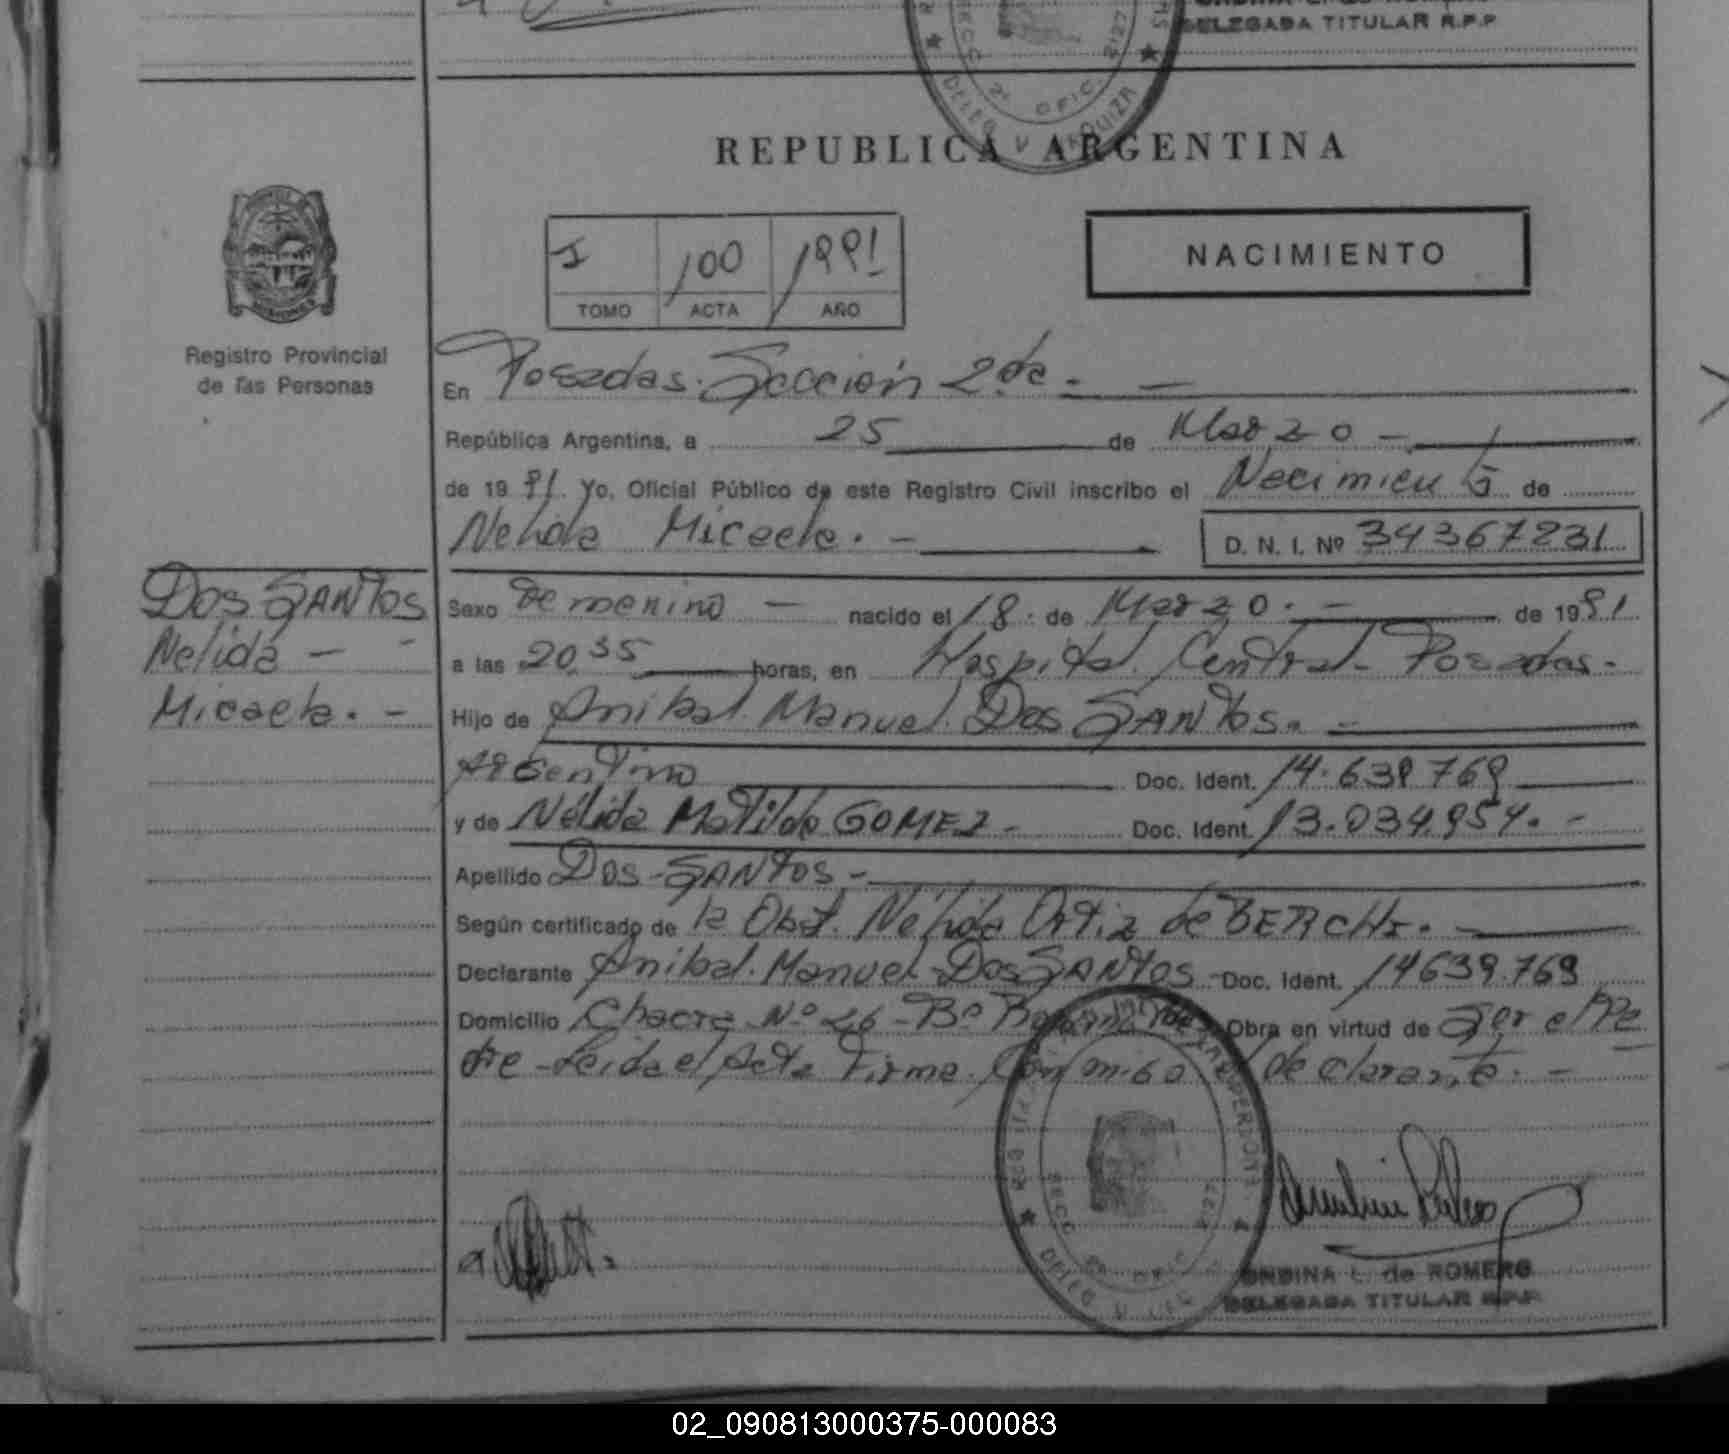 DELEGADA TITULAR R.P.P
REPUBLICA ARGENTINA
NACIMIENTO
I 100 1991
TOMO ACTA AÑO
Registro Provincial
de las Personas
En Posadas. Sección 2da. -
República Argentina, a 25 de Marzo -
de 1991. Yo, Oficial Público de este Registro Civil inscribo el Nacimiento de
Nelida Micaela. - D. N. I. Nº 34367231
DOS SANTOS
Nelida -
Micaela. -
Sexo Femenino - nacido el 18. de Marzo. - de 1991
a las 20,35 horas, en Hospital Central - Posadas -
Hijo de Anibal Manuel Dos SANTOS. -
Argentino Doc. Ident. 14.639769
y de Nélida Matilde GOMEZ - Doc. Ident. 13.034.954. -
Apellido DOS-SANTOS -
Según certificado de la Obst. Nélida Ortiz de BERCHI. -
Declarante Anibal Manuel Dos SANTOS - Doc. Ident. 14639.769
Domicilio Chacra Nº 26 - Bº Obra en virtud de Ser el Pa
dre - Leida el Acta Firma Conmigo el declarante. -
SECC OFIC 2127
ONDINA L. de ROMERO
DELEGADA TITULAR R.P.P.
02_090813000375-000083